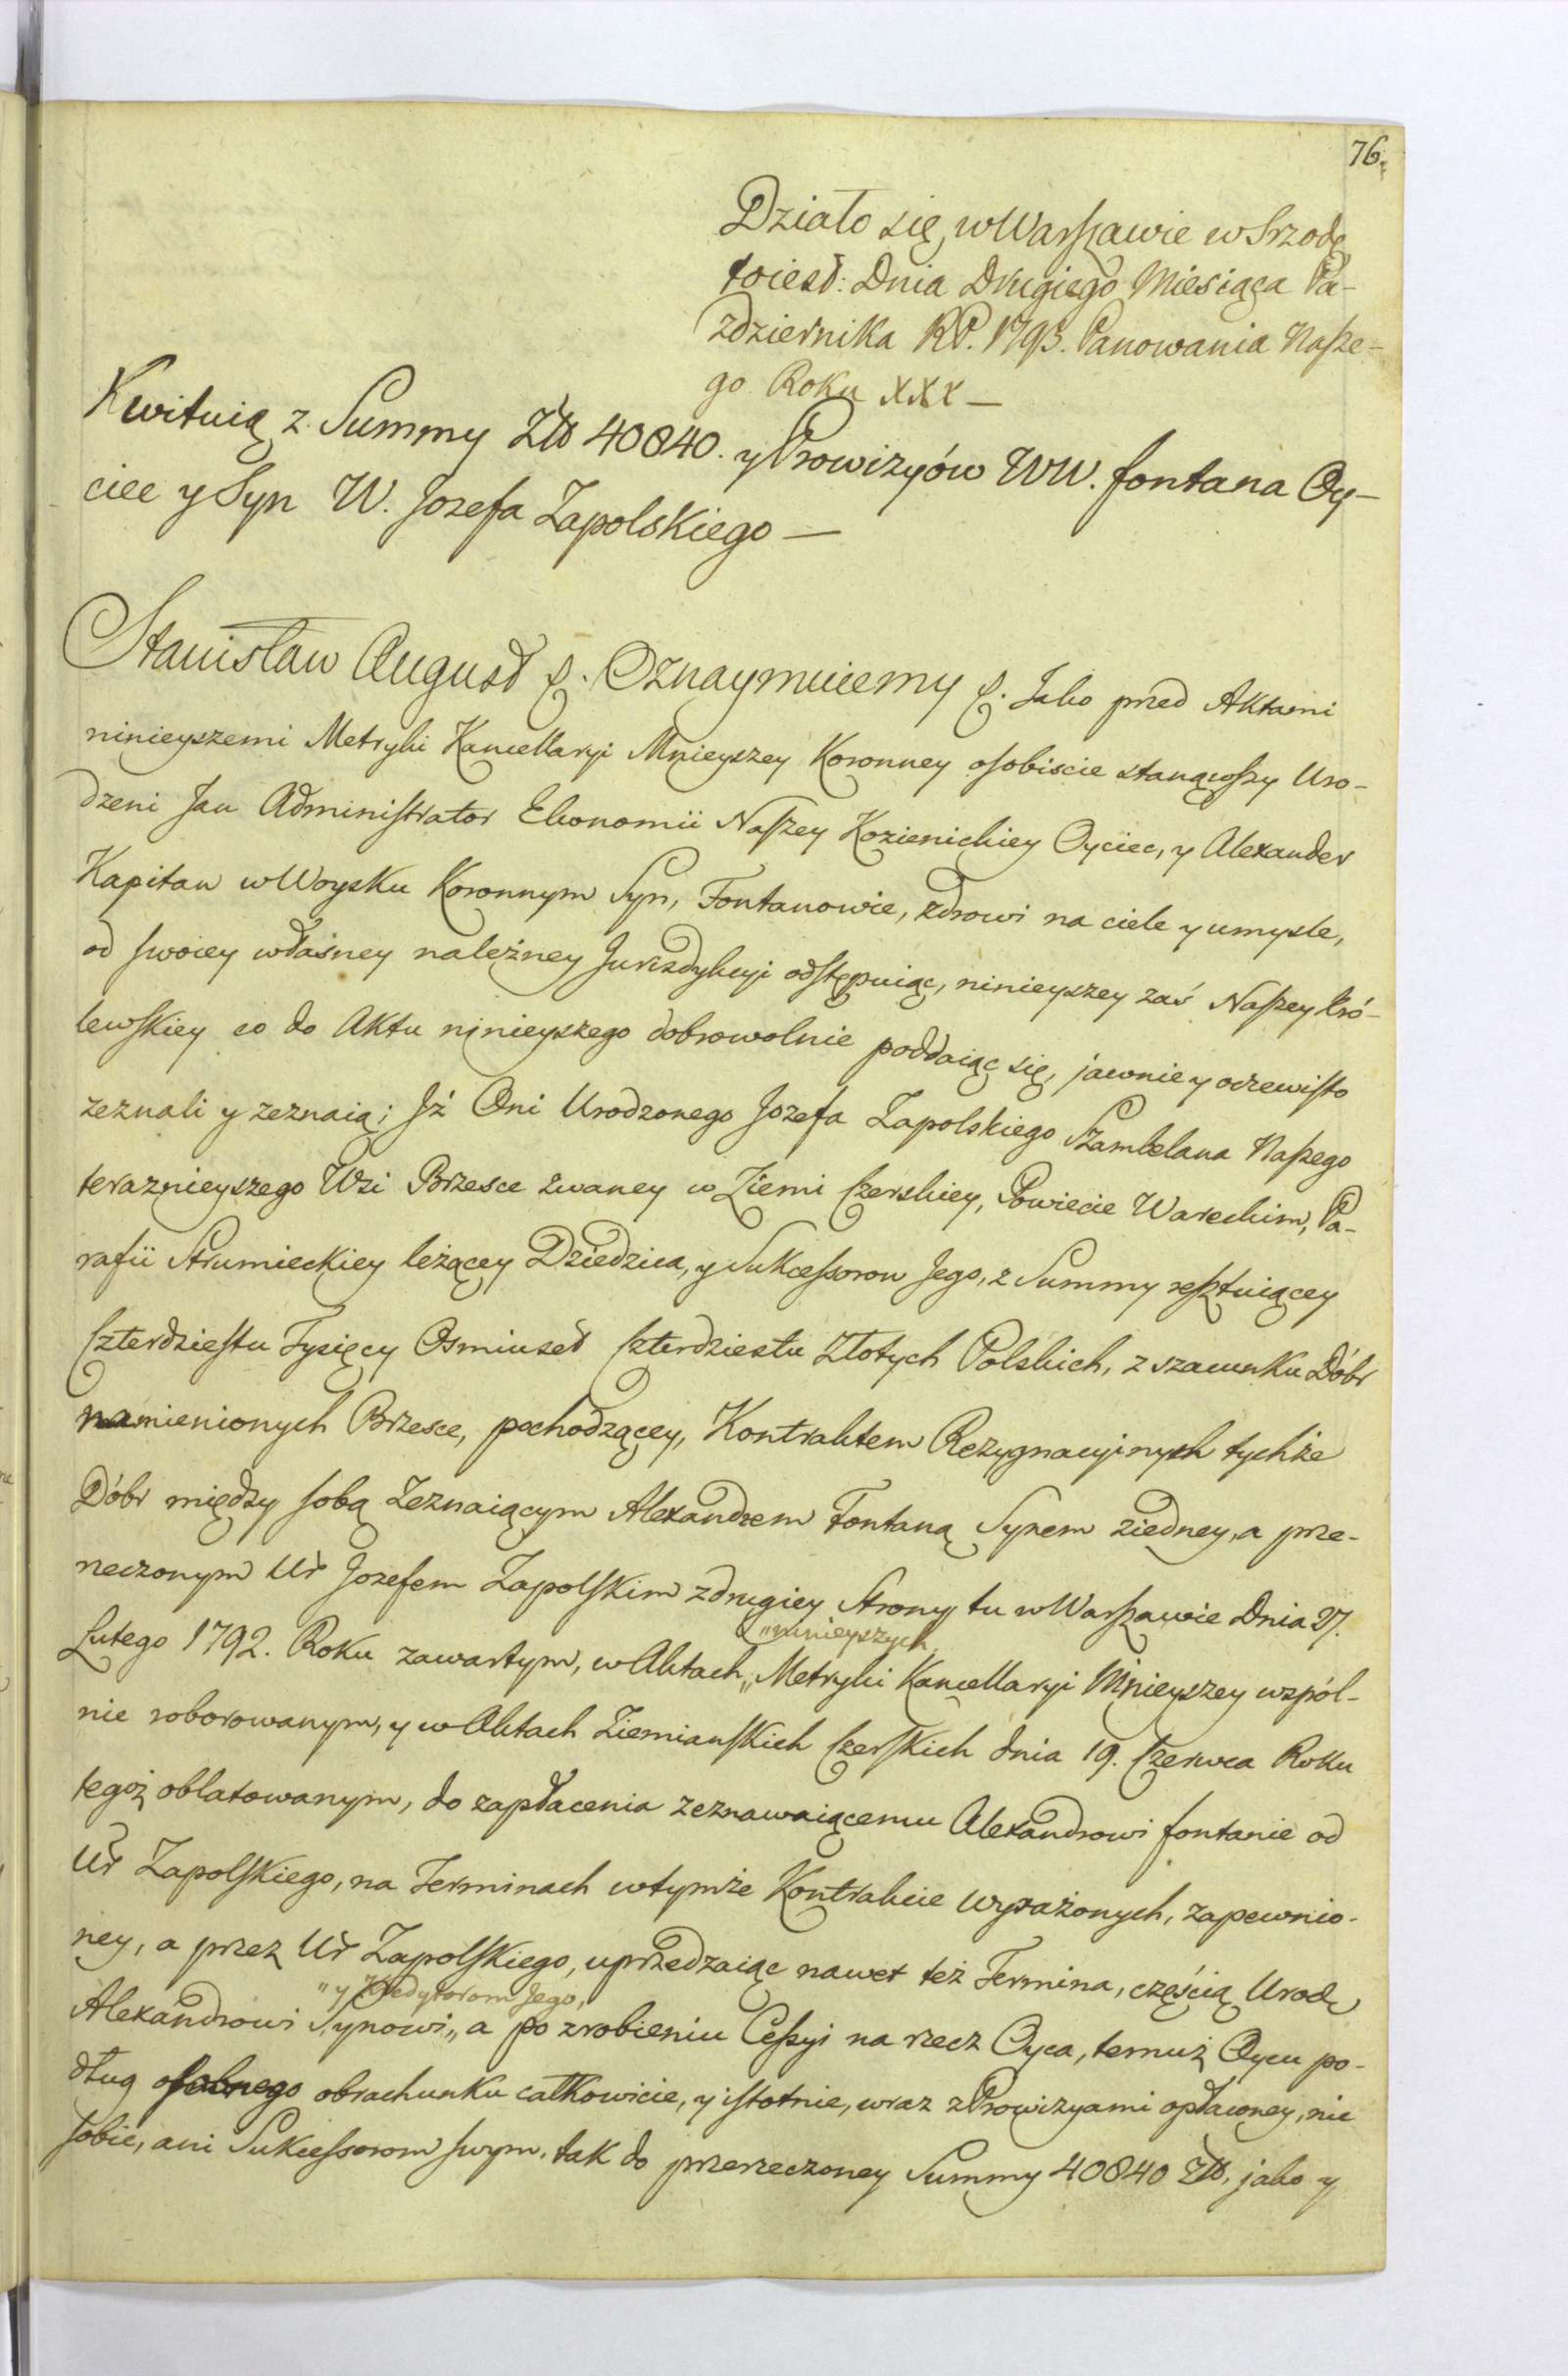 76.
Działo się w Warszawie w Srzodę
toiest: Dnia Drugiego Miesiąca Pa-
zdziernika RP. 1793. Panowania Nasze-
go Roku XXX —
Kwituią z Summy Złł 40840. y Prowizyów WW. fontana Oy-
ciec y Syn W. Jozefa Zapolskiego —
Stanisław August &. Oznaymuiemy &. Jako przed Aktami
ninieyszemi Metryki Kancellaryi Mnieyszey Koronney osobiscie stanąwszy Uro-
dzeni Jan Administrator Ekonomii Naszey Kozienickiey Oyciec, y Alexander
Kapitan w Woysku Koronnym Syn, Fontanowie, zdrowi na ciele y umysle,
od swoiey własney należney Jurisdykcyi odstępuiąc, ninieyszey zaś Naszey Kró-
lewskiey co do Aktu ninieyszego dobrowolnie poddaiąc się, jawnie y oczewisto
zeznali y zeznaią; Jż Oni Urodzonego Jozefa Zapolskiego Szambelana Naszego
teraznieyszego Wsi Brzesce zwaney w Ziemi Czerskiey, Powiecie Wareckim, Pa-
rafii Strumieckiey leżącey Dziedzica, y Sukcessorow Jego, z Summy resztuiącey
Czterdziestu Tysięcy Osmiuset Czterdziestu Złotych Polskich, z szacunku Dóbr
namienionych Brzesce, pochodzącey, Kontraktem Rezygnacyinych tychże
Dóbr między sobą Zeznaiącym Alexandrem Fontaną Synem ziedney, a prze-
rzeczonym Ur Jozefem Zapolskim z drugiey Strony tu w Warszawie Dnia 27.
Lutego 1792. Roku zawartym, w Aktach „ninieyszych„ Metryki Kancellaryi Mnieyszey wspól-
nie roborowanym, y w Aktach Ziemianskich Czerskich dnia 19. Czerwca Roku
tegoż oblatowanym, do zapłacenia zeznawaiącemu Alexandrowi fontanie od
Ur Zapolskiego, na Terminach w tymże Kontrakcie wyrażonych, zapewnio-
ney, a przez Ur Zapolskiego, uprzedzaiąc nawet też Termina, częścią Urodz
Alexandrowi Synowi „y Kredytorom Jego,„ a po zrobieniu Cessyi na rzecz Oyca, temuż Oycu po-
dług osobnego obrachunku całkowicie, y istotnie, wraz z Prowizyami opłaconey, nic
sobie, ani Sukcessorom swym, tak do przerzeczoney Summy 40840 Złł, jako y